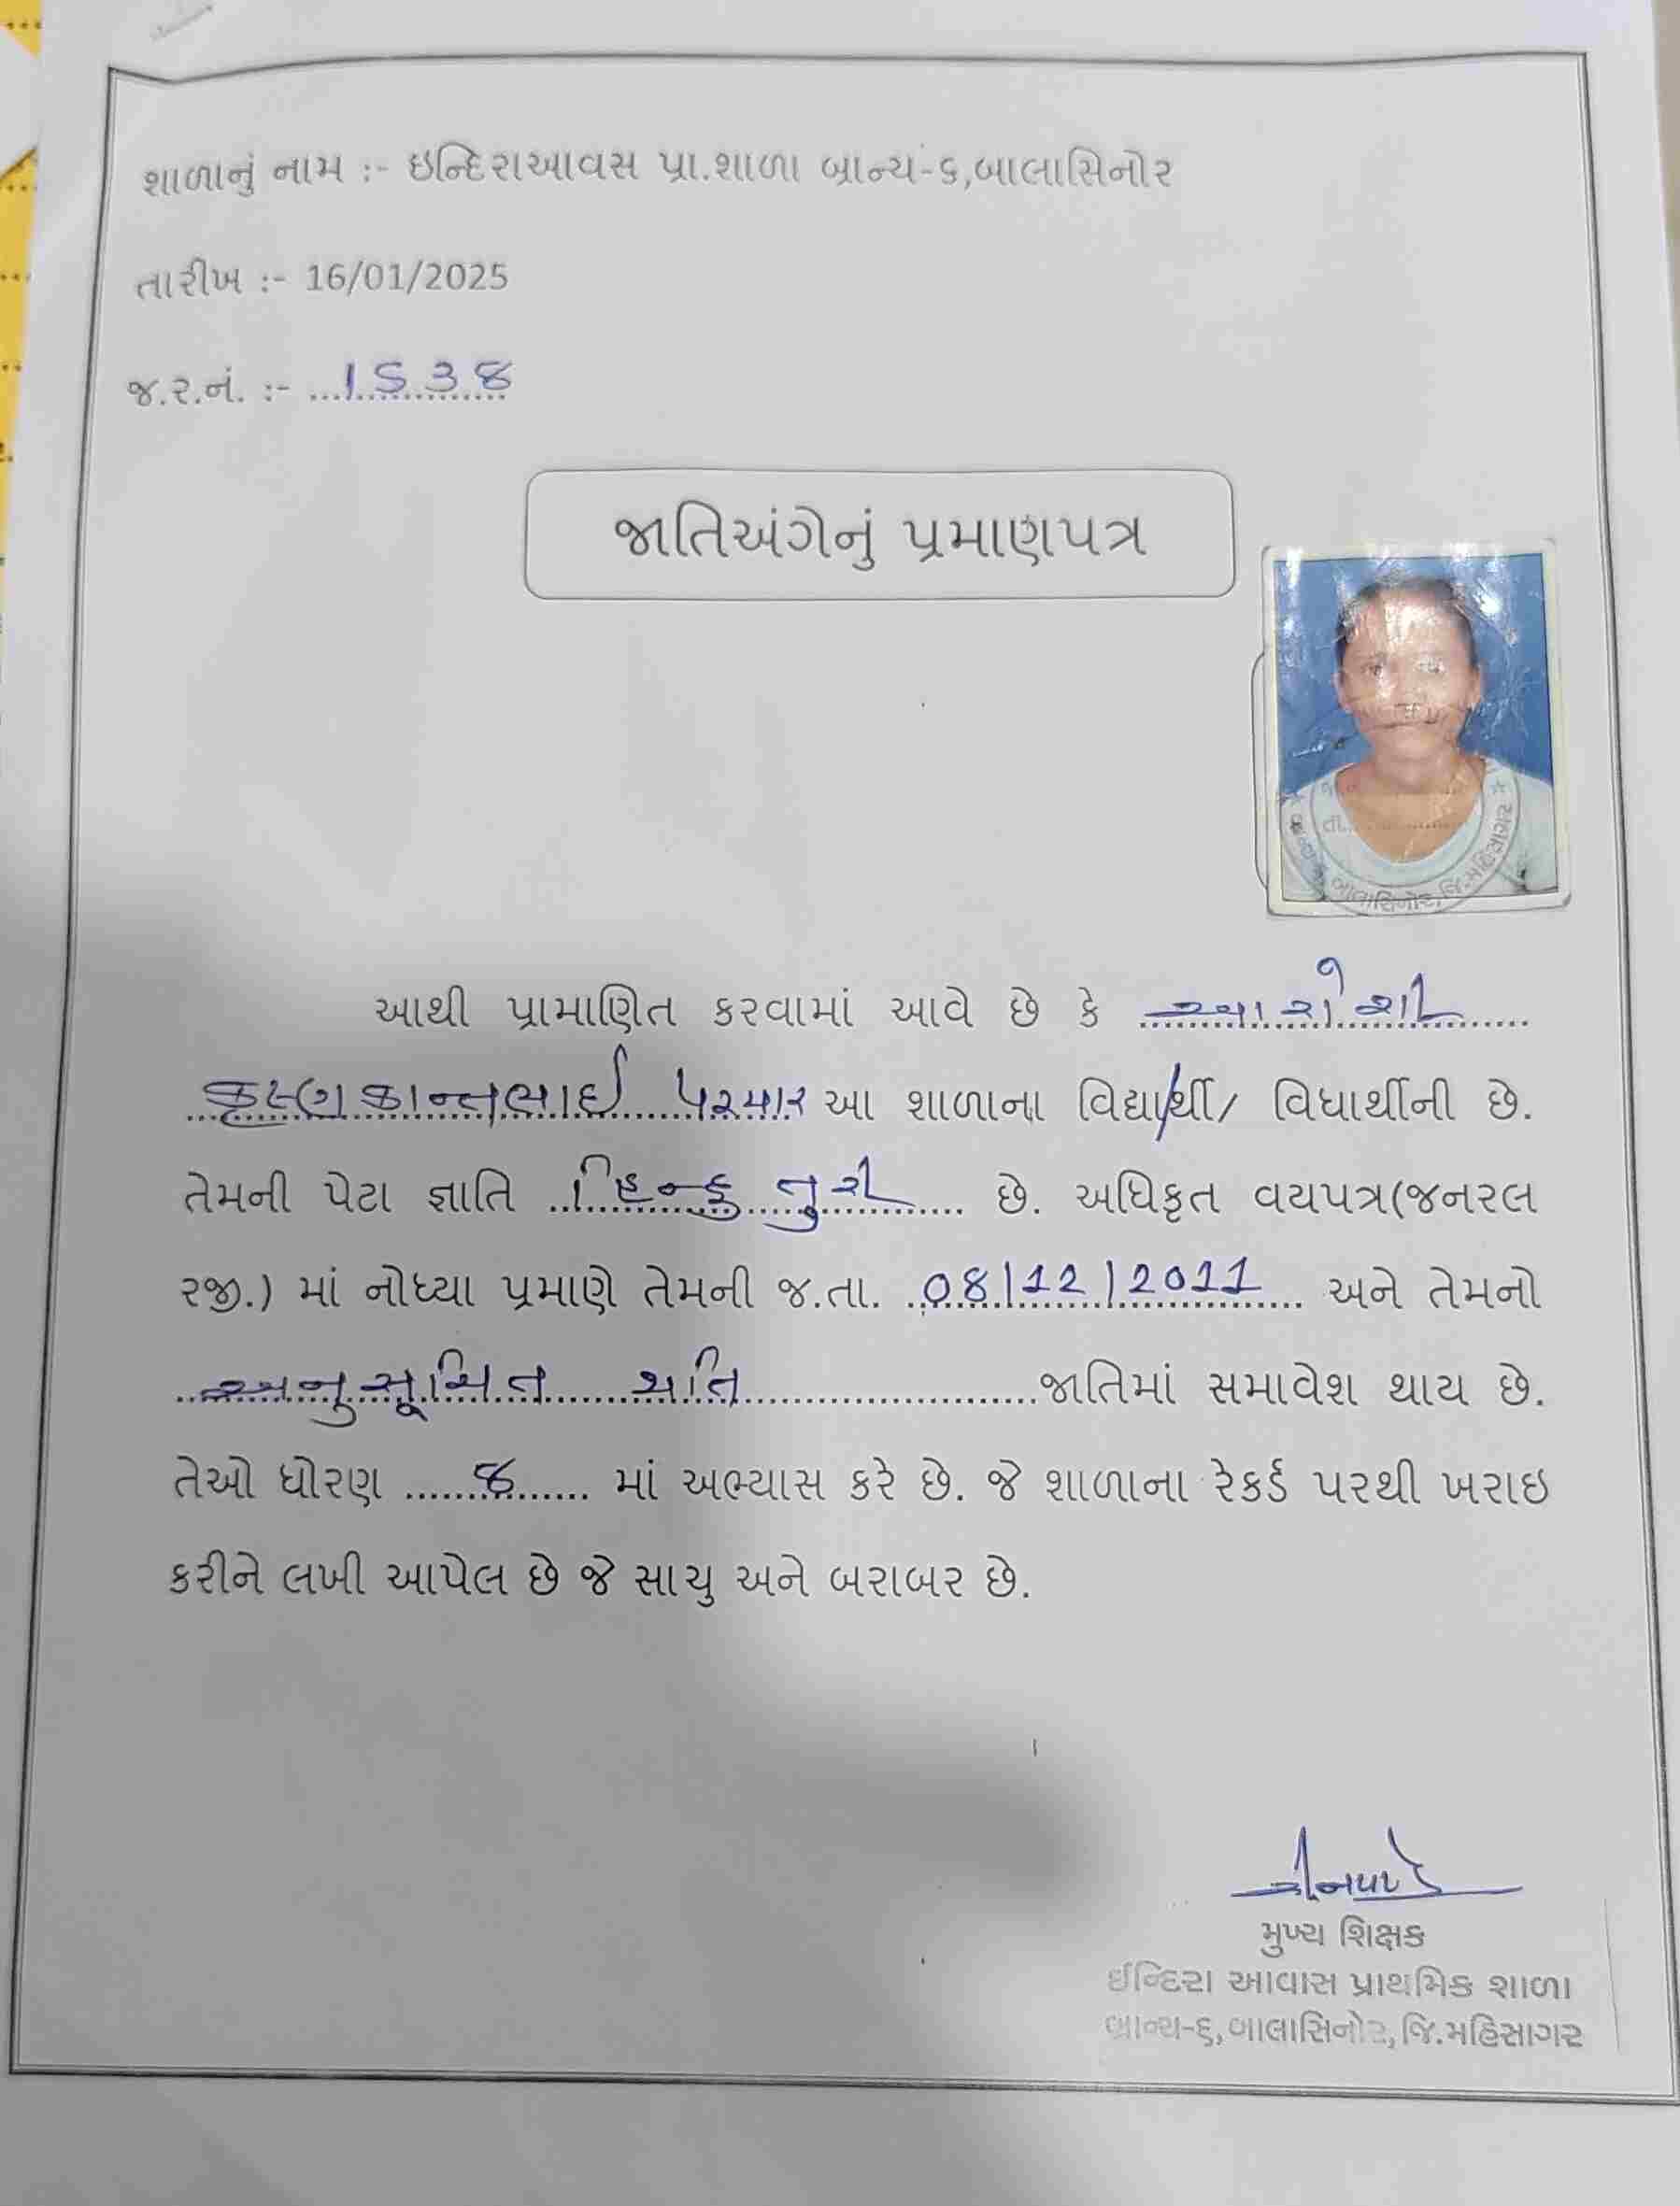 શાળાનું નામ :- ઇન્દિરાઆવસ પ્રા.શાળા બ્રાન્ચ-૬,બાલાસિનોર
તારીખ :- 16/01/2025
જ.ર.નં. :- 1538
જાતિઅંગેનું પ્રમાણપત્ર
આથી પ્રામાણિત કરવામાં આવે છે કે આરોશી
ક્રુષ્ણકાન્તભાઈ પરમાર આ શાળાના વિદ્યાર્થી/ વિધાર્થીની છે.
તેમની પેટા જ્ઞાતિ હિન્દુ તુરી છે. અધિકૃત વયપત્ર(જનરલ
રજી.) માં નોધ્યા પ્રમાણે તેમની જ.તા. 08/12/2011 અને તેમનો
અનુસૂચિત જાતિ જાતિમાં સમાવેશ થાય છે.
તેઓ ધોરણ 8 માં અભ્યાસ કરે છે. જે શાળાના રેકર્ડ પરથી ખરાઇ
કરીને લખી આપેલ છે જે સાચુ અને બરાબર છે.
મુખ્ય શિક્ષક
ઈન્દિરા આવાસ પ્રાથમિક શાળા
બ્રાન્ચ-૬, બાલાસિનોર, જિ.મહિસાગર